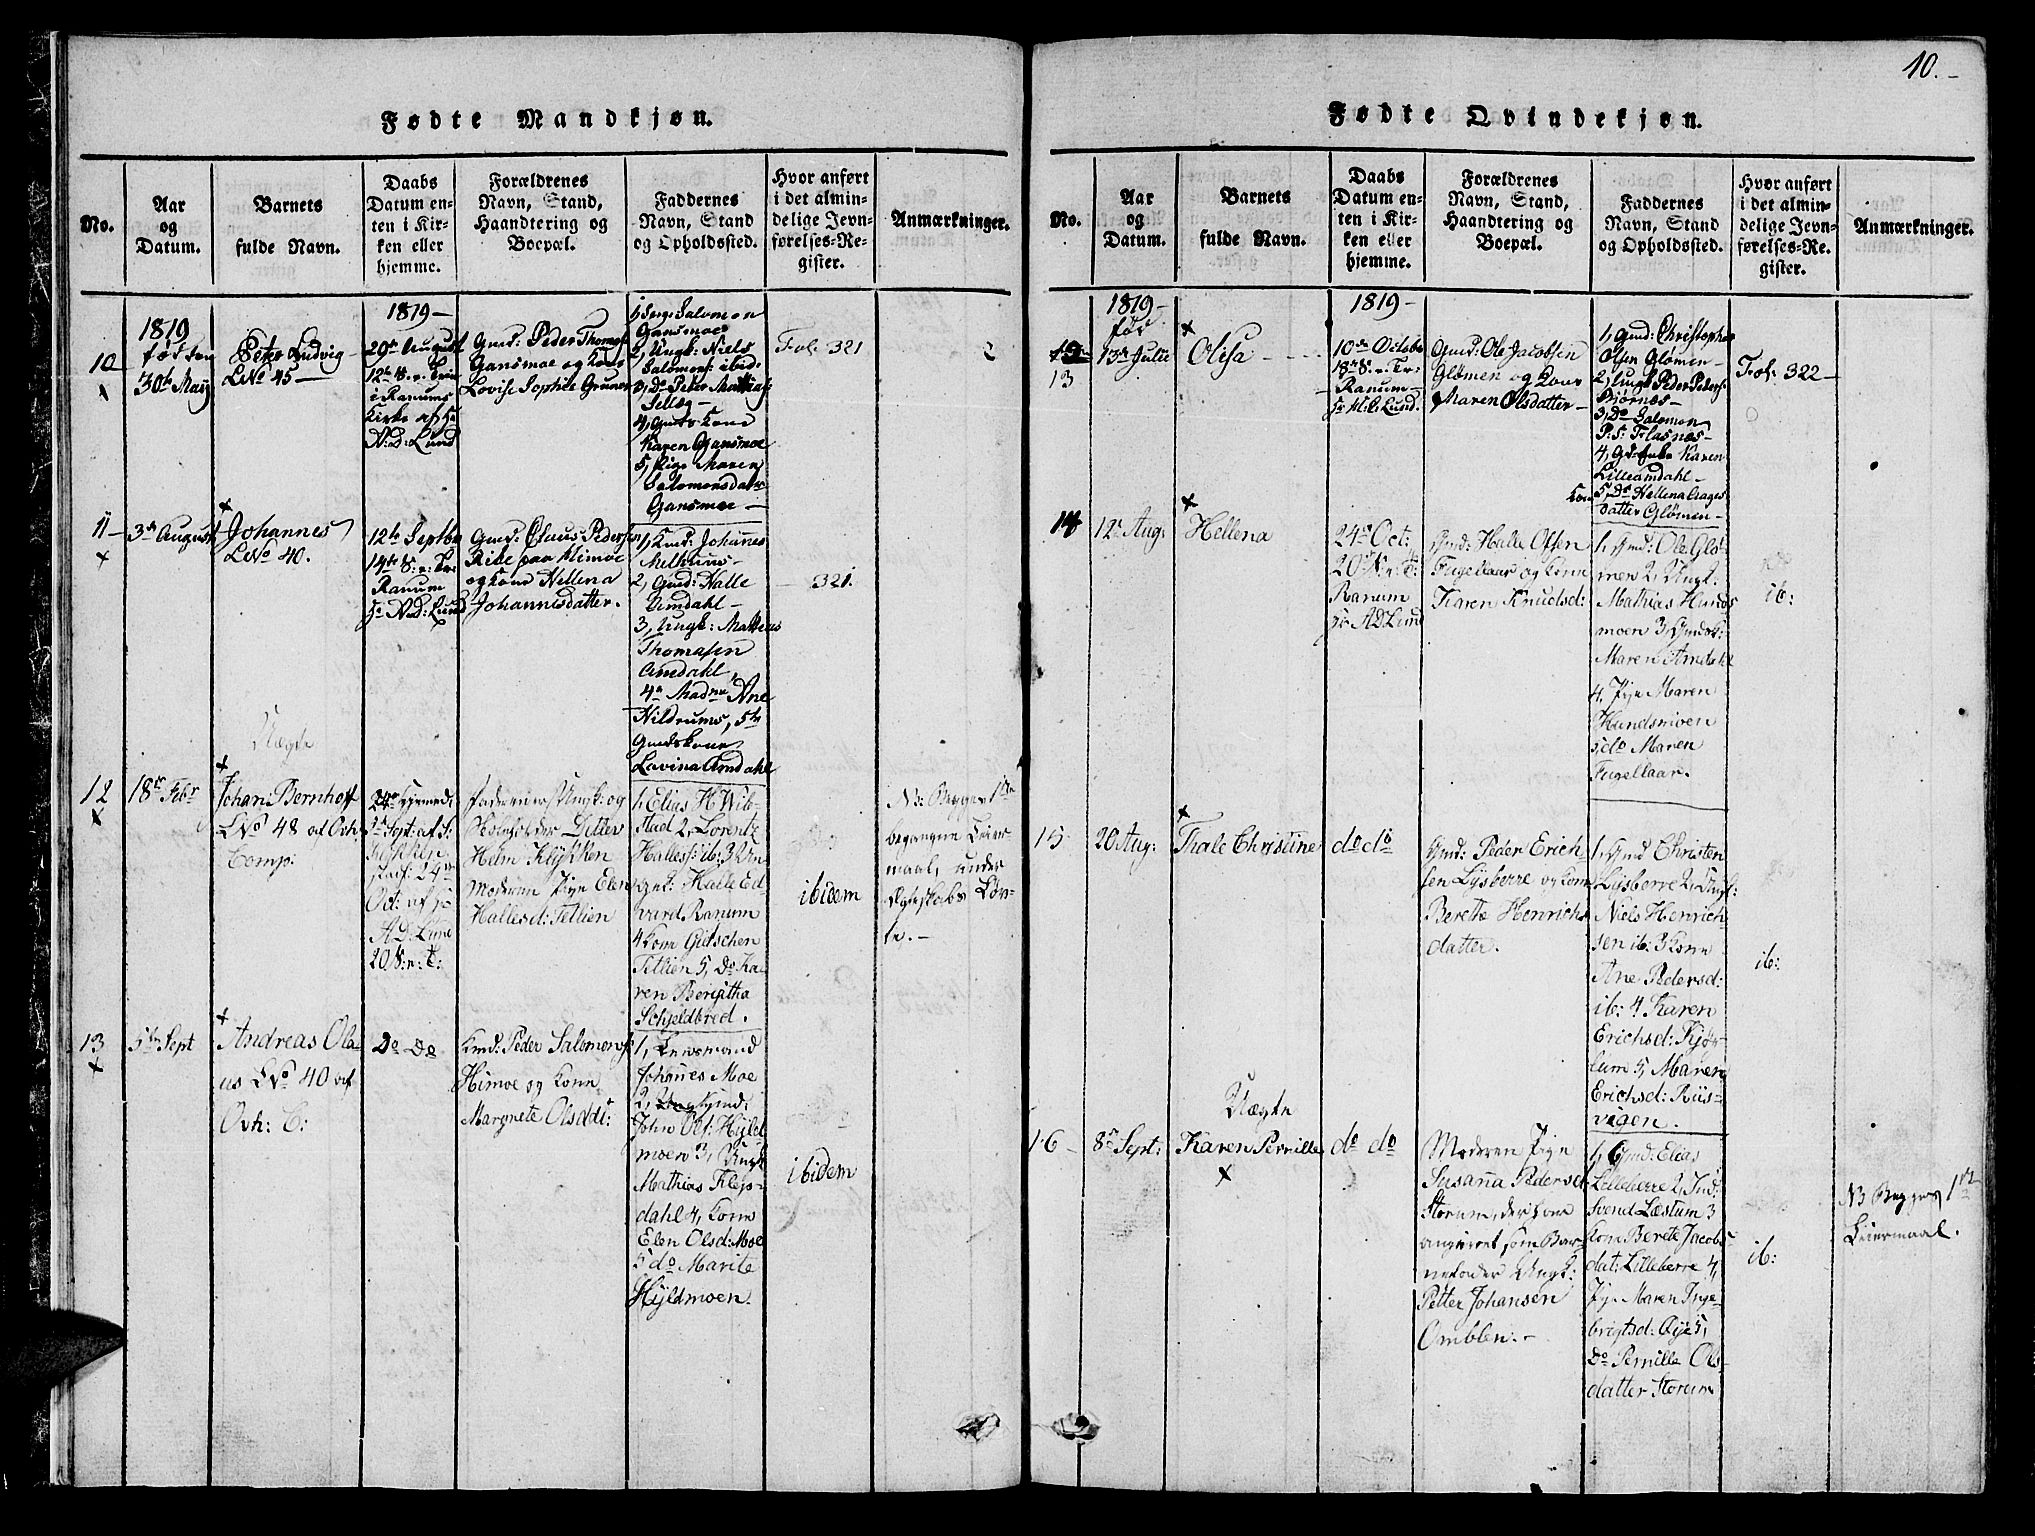 10.
Fødte Mandkjøn.
No.
Aar
og
Datum.
Barnets
fulde Navn.
Daabs
Datum en-
ten i Kir-
ken eller
hjemme.
Forældrenes
Navn, Stand,
Haandtering og
Boepæl.
Faddernes
Navn, Stand
og Opholdssted.
Hvor anført
i det almin-
delige Jevn-
førelses-Re-
gister.
Anmærkninger.
10
1819
30th May
Peter Ludvig
LNo 45
1819
29de August
12te S. e.
i Ranums
Kirke af
A:D: Lund
Gmd: Peder Thomes
Gansmoe og Kone
Lovise Sophie Gruner
1, Serg: Salomon
Gansmoe
2, Ungk: Niels
Salomons: ibid:
3, Do Peter Mathias
Sellæg
4, Gmds Kone
Karen Gansmoe
5, Pige Maren
Salomonsdatter
Gansmoe
Fol: 321
11
3de August
Johannes
LNo 40.
12te Septbr
14de S: e: Tr:
Ranum
A:D: Lund
Gmd: Claus Pedersen
paa Himoe
og Kone Hellena
Johannisdatter.
1, Kmd: Johannes
2, Gmd: Halle
Amdahl
3, Ungk: Matheus
Thomasen
Amdahl
4de Madme Ane
Nildrums, 5te
Gmdskone
Lavina Amdahl
321.
Uægte
12
18de Febr
Johan Bernhoft
LNo 48 af Ovh:
Comp:
hjemmed:
Sept: af S:
Klykken
stadf: 24de
Oct: af
AD: Lund
20 S: e: T:
faderen er Ungk: og
Ditter
Helm Klykken
Moderen Pige Elen
Hallesd: Tetlien
1, Elias H Wib-
stad 2, Lorents
Halles: ib: 3 Un
gk: Halle Ed
vard Ranum
4 Kone Gutschen
Tetlien 5, Do Ka-
ren Beritha
Schjeldbred.
ibidem
NB: Begges 1te
begangne Leier
maal, under
Egteskabs Løv-
te.
13
5te Sept
Andreas Ola-
us LNo 40 af
Ovh: C:
Do Do
Kmd: Peder Salomons
Himoe og Kone
Margrete Olsdt:
1, Lensmand
Johanes Moe
2, Gmd:
John Ols: Hyld
moen 3, Ungk
Mathias Flejs-
dahl 4, Kone
Elen Olsd: Moe
5 do Marite
Hyldmoen.
ibidem
Fødte Qvindekjøn.
No.
Aar
og
Datum.
Barnets
fulde Navn.
Daabs
Datum en-
ten i Kir-
ken eller
hjemme.
Forældrenes
Navn, Stand,
Haandtering og
Boepæl.
Faddernes
Navn, Stand
og Opholdssted.
Hvor anført
i det almin-
delige Jevn-
førelses-Re-
gister.
Anmærkninger.
13
1819
13de Julii
Olisa
1819
10de Octobr
18de S: e: Tr:
Ranum
Lund.
Gmd: Ole Jacobsen
Glømen og Kone
Maren Olsdatter
1, Gmd: Christopher
Olsen Glømen
2, Ungk Peder Peders:
Bjørnes
3, Do Salomon
P: S: Flasnes
4, Karen
Lilleamdahl
5, Do Hellena Aages
datter Glømen
Fol: 322
14
12te Aug:
Hellena
24de Oct:
20 S: e: T:
Ranum
AD. Lund
Gmd: Halle Olsen
Fugellaar og Kone
Karen Knudsd:
1, Gmd: Ole Glø-
men 2, Ungk:
Mathias Hunds
moen 3, Gmdsk:
Maren Amdahl
4, Pige Maren
Hundsmoen
5, do Maren
Fugellaar.
ib:
15
20 Aug:
Thale Christine
do do
Gmd: Peder Erich-
sen Lysberre og Kone
Berette Henrichs
datter.
1, Gmd Christen
Lysberre 2, Ungk:
Niels Henrich-
sen ib: 3 Kone
Ane Pedersd:
ib: 4 Karen
Erichsd: Kjør-
lum 5, Maren
Erichsd: Rüs-
vigen.
ib:
Uægte
16
8de Sept:
Karen Pernille
do do
Moderen Pige
Susanna Pedersd:
Storum, der har
angivet som Bar-
nefader Ungk:
Petter Johansen
Omblen.
1, Gmd: Elias
Lilleberre 2, Ind:
Svend Læstum 3
Kone Berete Jacobs
dat: Lilleberre 4,
Pige Maren Inge-
brigtsd: Øye 5,
Do Pernille Ols-
datter Storum
ib:
NB Begges 1te
Leiermaal.